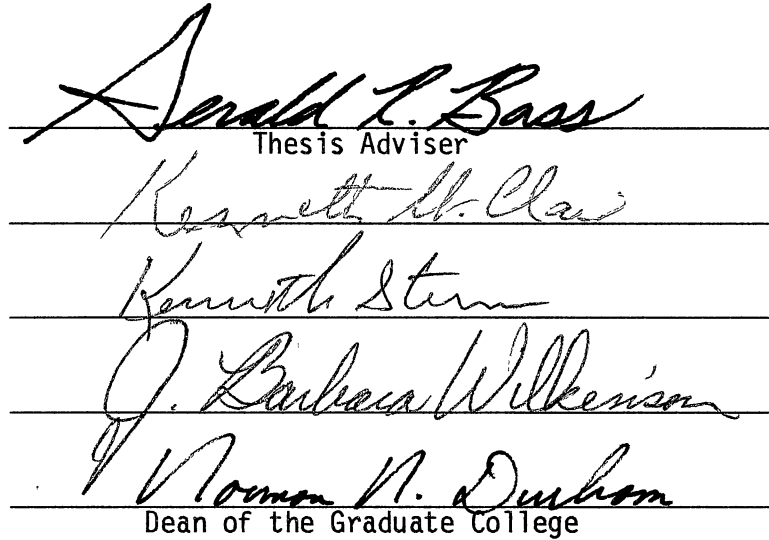 Gerald R. Bass
Thesis Adviser
Kenneth St. Clair
Kenneth Stern
J. Barbara Wilkinson
Norman N. Durham
Dean of the Graduate College